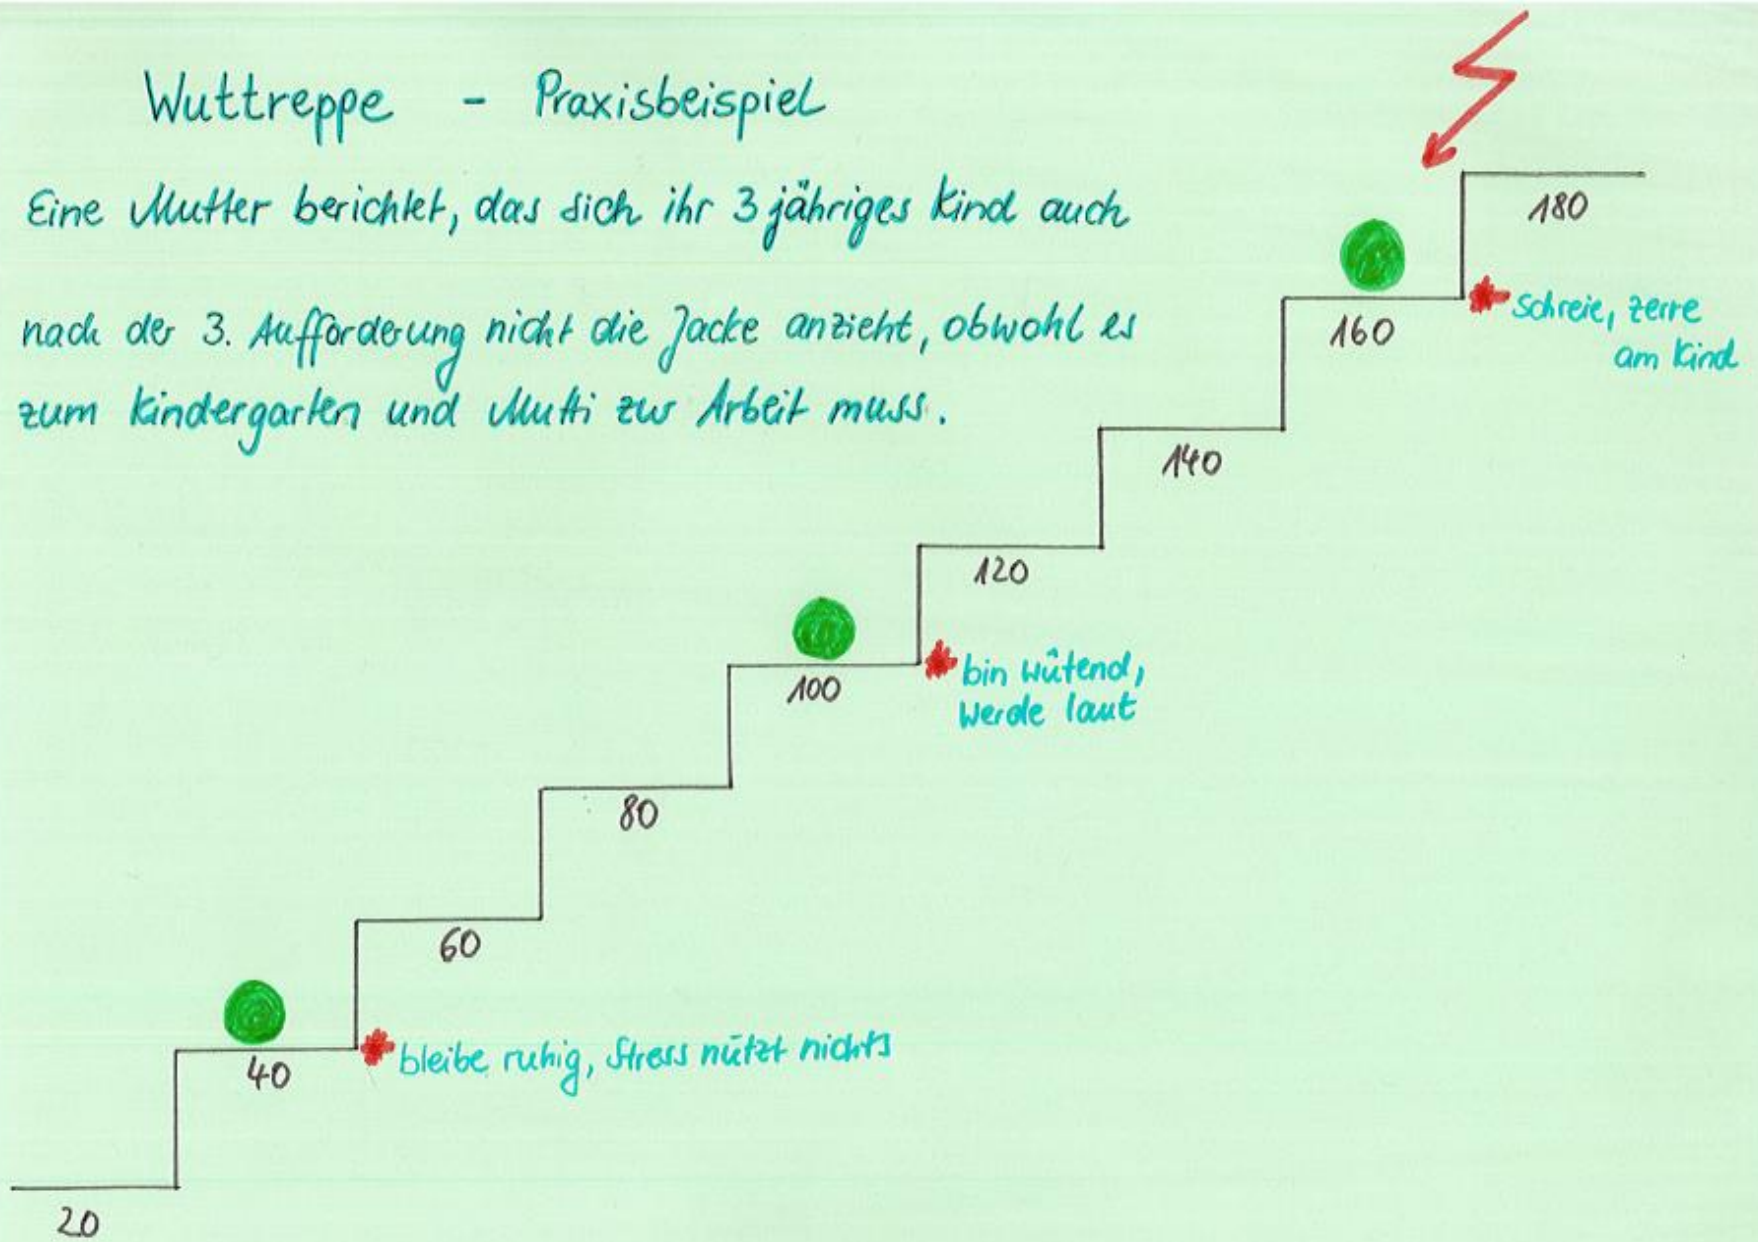 Wuttreppe - Praxisbeispiel
Eine Mutter berichtet, das sich ihr 3 jähriges Kind auch
nach der 3. Aufforderung nicht die Jacke anzieht, obwohl es
zum Kindergarten und Mutti zur Arbeit muss.
180
160
schreie, zerre
am Kind
140
120
100
bin wütend,
werde laut
80
60
40
bleibe ruhig, Stress nützt nichts
20